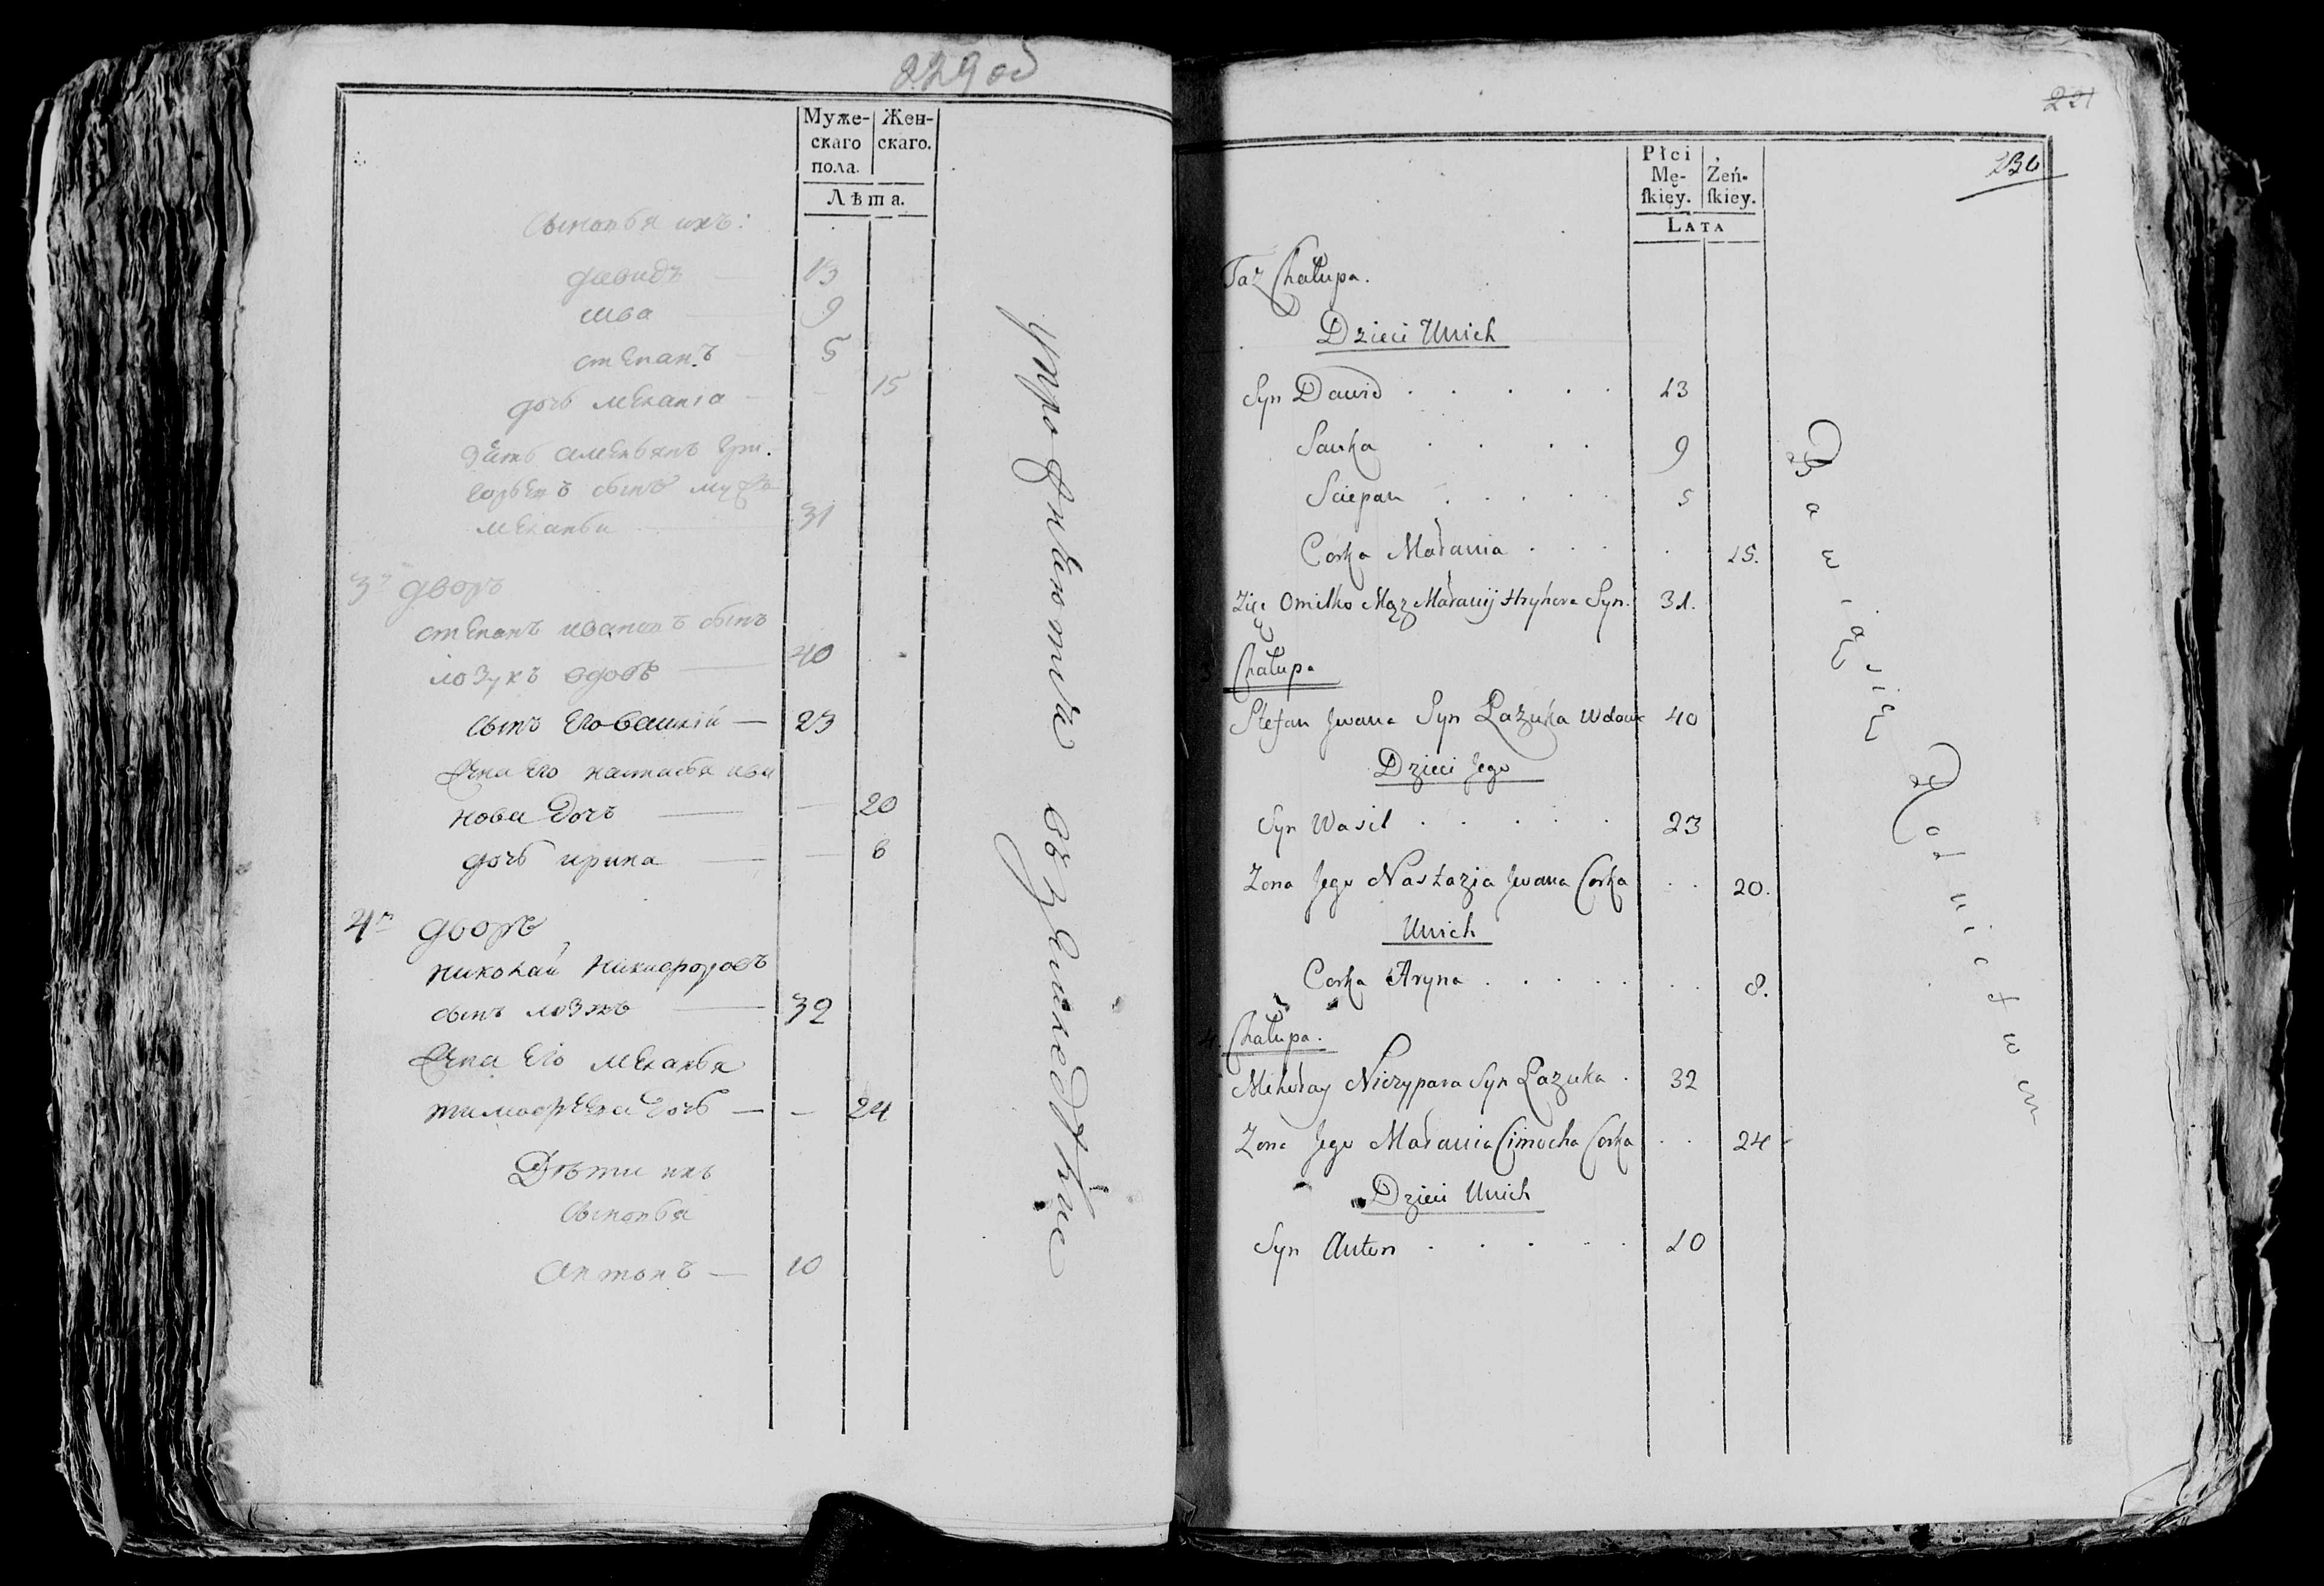 229 об
Муже-
скаго
пола.
Жен-
скаго.
Лѣта.
Сыновья ихъ:
Давидъ — 13
9
Степанъ 5
дочь Меланіа — 15
сынъ мужъ
Меланьи — 31
3й дворъ
Степанъ Ивановъ сынъ
Лозукъ вдовъ — 40
сынъ Его Василій — 23
Жена Его Настасья Ива
нова Дочь — — 20
дочь Ирина — — 8
4й дворъ
Николай Никифоровъ
сынъ — 32
Жена Его Меланья
Тимофѣева дочь — — 24
Дѣти ихъ
Сыновья
Антонъ — 10
въ земледѣліе
221
230
Płci
Mę-
ſkiey.
Żeń-
ſkiey.
LATA
Taż Chałupa.
Dzieci Unich
Syn Dawid . . . . . 13
Sawka . . . . 9
Sciepan . . . . . 5
Corka Małania . . . . 15.
Zięć Omilko Mąż Małanij Hryhora Syn. 31.
3. Chałupa
Stefan Jwana Syn Łazuka Wdow 40
Dzieci Jego
Syn Wasil . . . . . 23
Zona Jego Nastazia Jwana Corka . . 20.
Unich
Corka Aryna . . . . . . . 8.
4. Chałupa.
Mikołay Niczypara Syn Łazuka . 32
Zona Jego Małania Cimocha Corka . . 24
Dzieci Unich
Syn Anton . . . . . 10
Rolnictwem